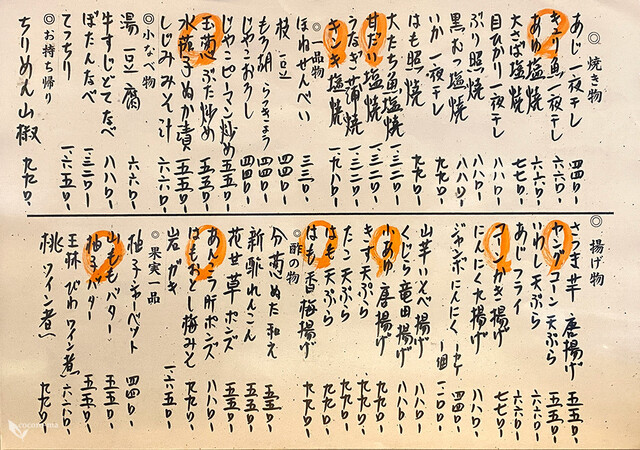 ◎焼き物
あじ一夜干し 四四〇-
キス一夜干し 六六〇-
あゆ塩焼 六六〇-
大さば塩焼 七七〇-
目ひかり一夜干し 八八〇-
ぶり照焼 八八〇-
黒むつ塩焼 八八〇-
いか一夜干し 九九〇-
はも照焼 九九〇-
太たちう魚塩焼 一三二〇-
甘だい塩焼 一三二〇-
うなぎ蒲焼 一三二〇-
キンキ塩焼 一九八〇-
◎一品物
ほねせんべい 三三〇-
枝豆 四四〇-
もろ胡らっきょう 四四〇-
じゃこおろし 四四〇-
じゃこピーマン炒め 五五〇-
玉菊ぶた炒め 五五〇-
水茄子ぬか漬 五五〇-
しじみみそ汁 六六〇-
◎小なべ物
湯豆腐 六六〇-
牛すじどてなべ 八八〇-
ぼたんなべ 一三二〇-
てっちり 一六五〇-
◎お持ち帰り
ちりめん山椒 九九〇-
◎揚げ物
さつま芋唐揚げ 五五〇-
ヤングコーン天ぷら 五五〇-
いわし天ぷら 六六〇-
あじフライ 六六〇-
コーンかき揚げ 七七〇-
にんにく丸揚げ 八八〇-
ジャンボにんにく 一ヶ 四四〇-
一個 一一〇〇-
山芋いそべ揚げ 八八〇-
くじら竜田揚げ 八八〇-
小あゆ唐揚げ 九九〇-
きす天ぷら 九九〇-
たこ天ぷら 九九〇-
はも天ぷら 九九〇-
はも香梅揚げ 九九〇-
◎酢の物
分葱ぬた和え 五五〇-
新蓮れんこん 五五〇-
花甘草ポンズ 五五〇-
あん肝ポンズ 八八〇-
はもおとし梅みそ 九九〇-
岩がき 一六五〇-
◎果実一品
柚子シャーベット 四四〇-
山ももバター 五五〇-
柚子バター 五五〇-
玉林びわワイン煮 六六〇-
桃ワイン煮 九九〇-